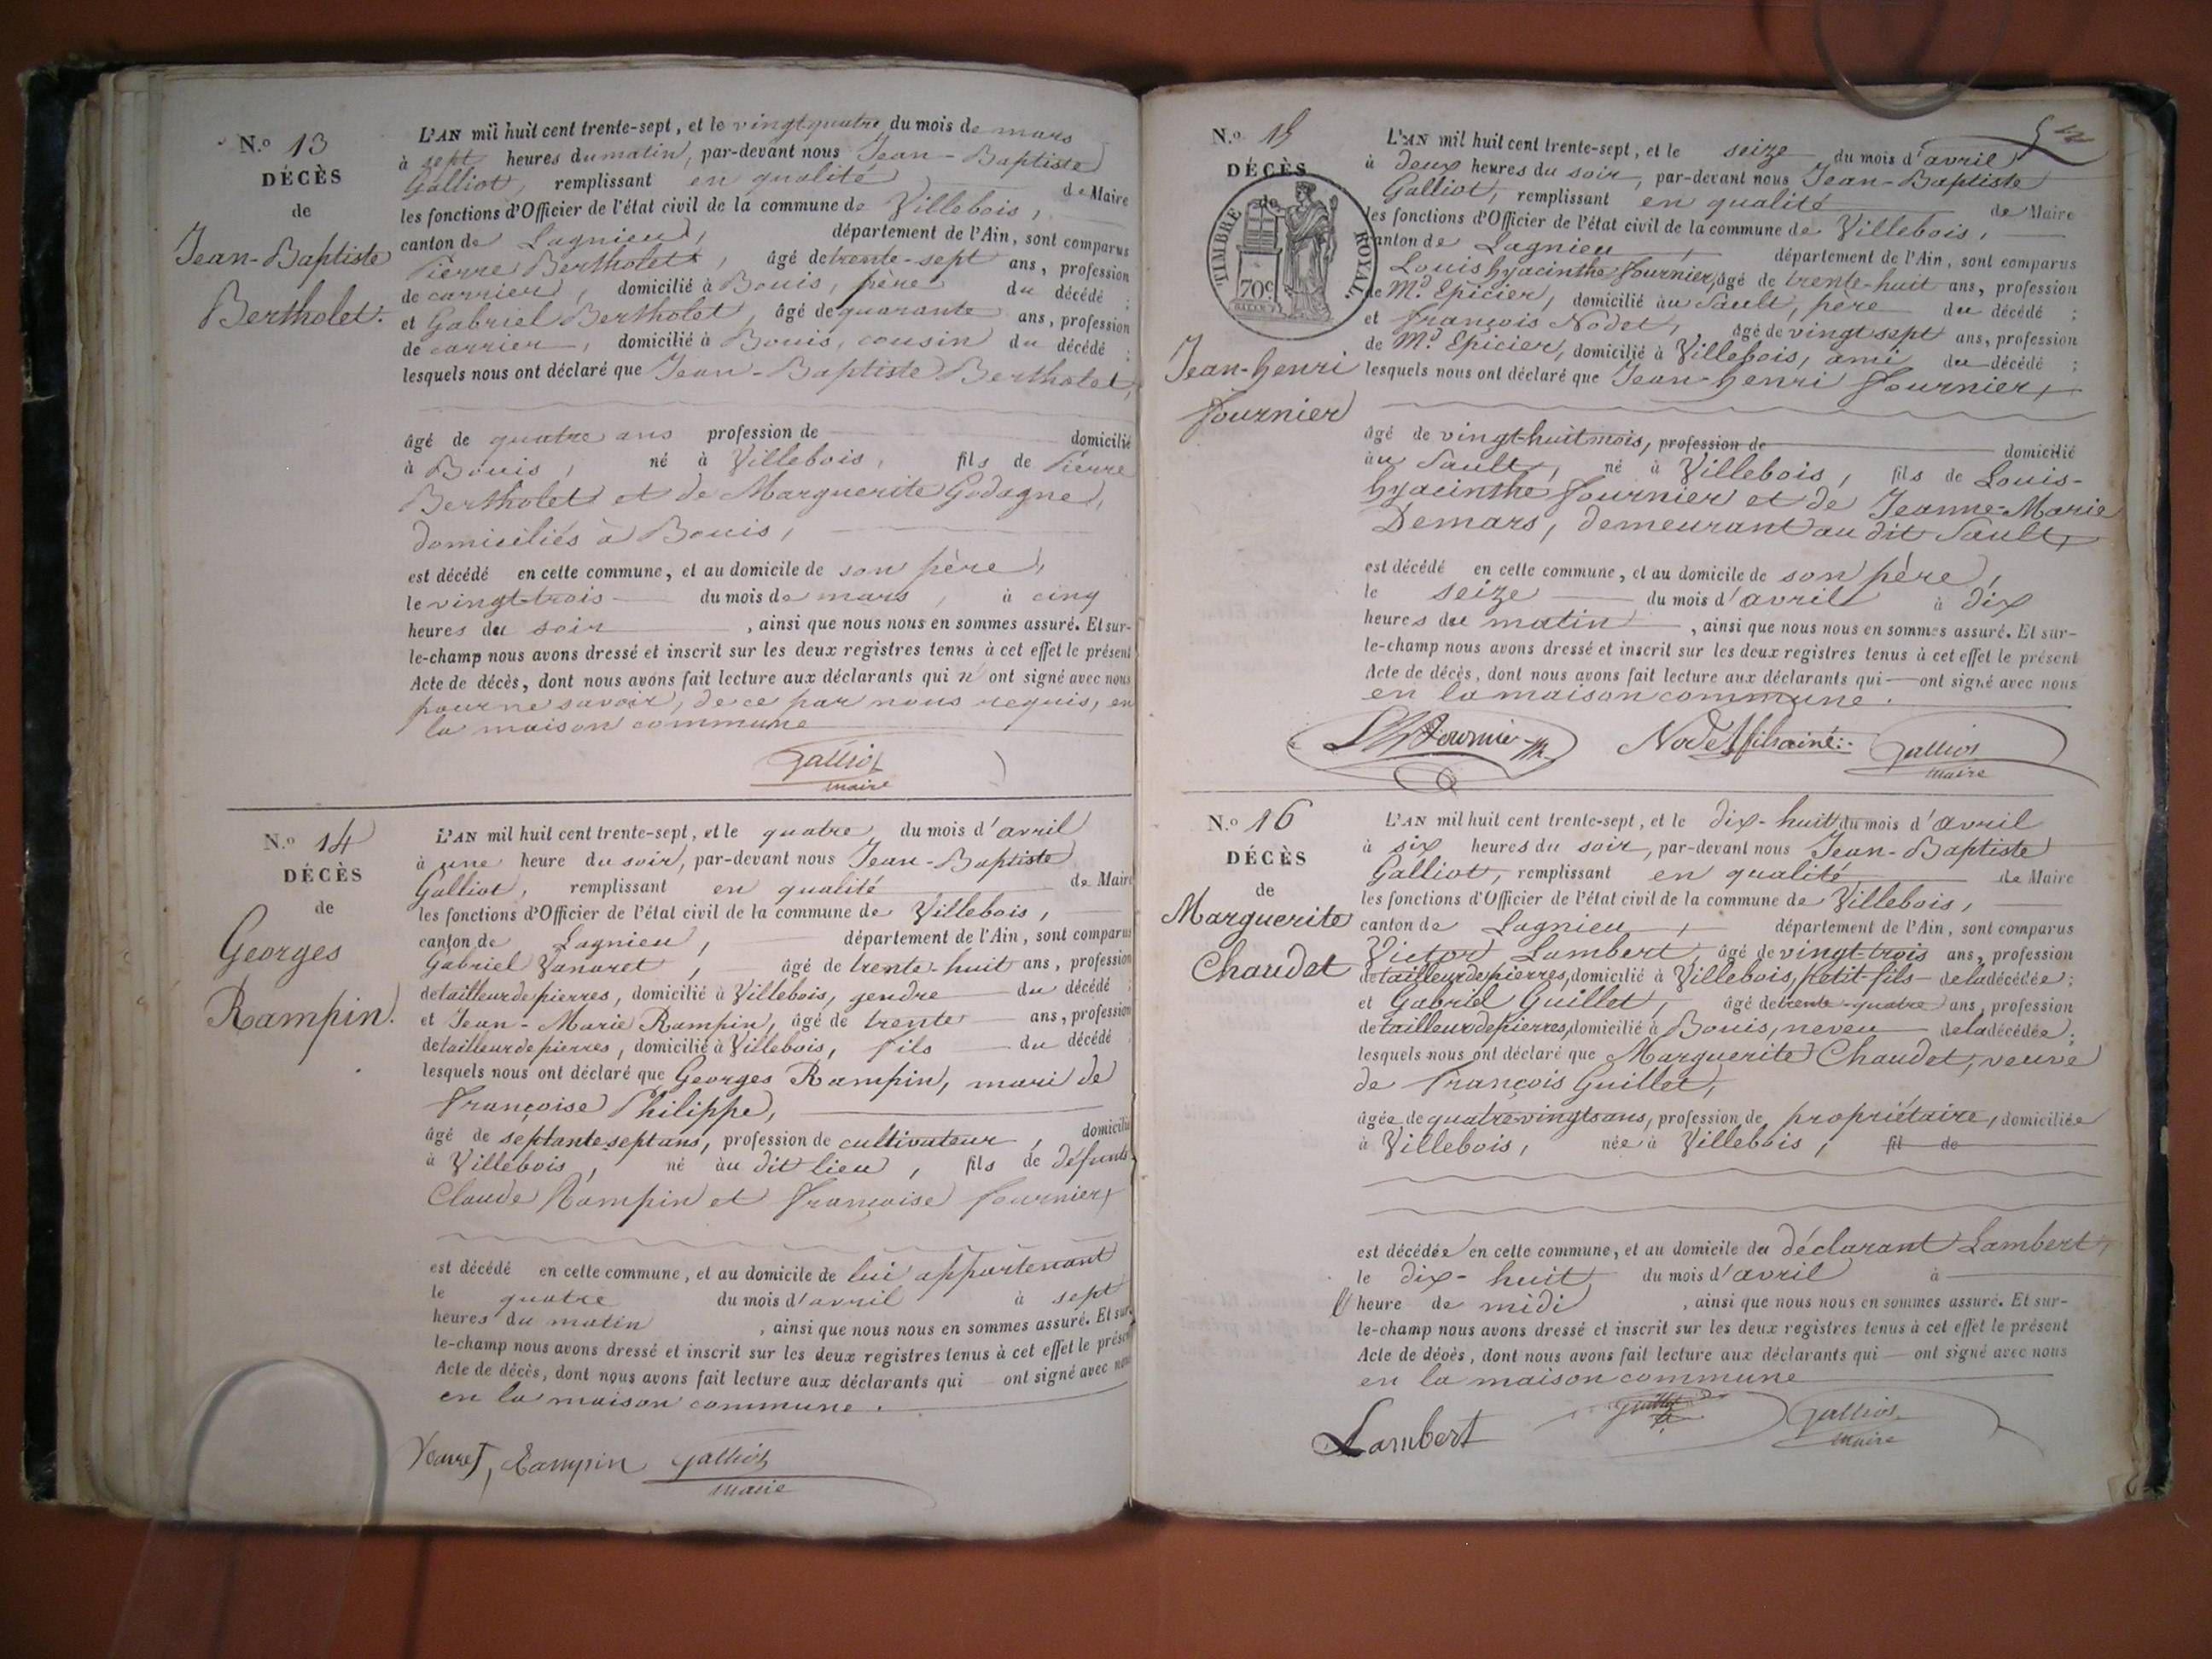 N.o 13
DÉCÈS
de
Jean-Baptiste
Bertholet.
L'AN mil huit cent trente-sept, et le vingt quatre du mois de mars
à sept heures du matin, par-devant nous Jean-Baptiste
Galliot, remplissant en qualité de Maire
les fonctions d'Officier de l'état civil de la commune de Villebois,
canton de Lagnieu, département de l'Ain, sont comparus
Pierre Bertholet, âgé de trente-sept ans, profession
de carrier, domicilié à Bouis, père du décédé ;
et Gabriel Bertholet, âgé de quarante ans, profession
de carrier, domicilié à Bouis, cousin du décédé ;
lesquels nous ont déclaré que Jean-Baptiste Bertholet,
âgé de quatre ans profession de domicilié
à Bouis, né à Villebois, fils de Pierre
Bertholet et de Marguerite Godagne,
domiciliés à Bouis,
est décédé en cette commune, et au domicile de son père,
le vingt-trois du mois de mars, à cinq
heures du soir, ainsi que nous nous en sommes assuré. Et sur-
le-champ nous avons dressé et inscrit sur les deux registres tenus à cet effet le présent
Acte de décès, dont nous avons fait lecture aux déclarants qui n'ont signé avec nous
pour ne savoir, de ce par nous requis, en
la maison commune
Galliot
maire
N.o 14
DÉCÈS
de
Georges
Rampin.
L'AN mil huit cent trente-sept, et le quatre du mois d'avril
à une heure du soir, par-devant nous Jean-Baptiste
Galliot, remplissant en qualité de Maire
les fonctions d'Officier de l'état civil de la commune de Villebois,
canton de Lagnieu, département de l'Ain, sont comparus
Gabriel Vanaret, âgé de trente-huit ans, profession
de tailleur de pierres, domicilié à Villebois, gendre du décédé ;
et Jean-Marie Rampin, âgé de trente ans, profession
de tailleur de pierres, domicilié à Villebois, fils du décédé
lesquels nous ont déclaré que Georges Rampin, mari de
Françoise Philippe,
âgé de septante sept ans, profession de cultivateur, domicilié
à Villebois, né au dit lieu, fils de défunts
Claude Rampin et Françoise Fournier,
est décédé en cette commune, et au domicile de lui appartenant
le quatre du mois d'avril à sept
heures du matin, ainsi que nous nous en sommes assuré. Et sur-
le-champ nous avons dressé et inscrit sur les deux registres tenus à cet effet le présent
Acte de décès, dont nous avons fait lecture aux déclarants qui ont signé avec nous
en la maison commune.
Rampin Galliot
maire
N.o 15
DÉCÈS
de
TIMBRE ROYAL.
70c
Jean-henri
fournier
L'AN mil huit cent trente-sept, et le seize du mois d'avril
à deux heures du soir, par-devant nous Jean-Baptiste
Galliot, remplissant en qualité de Maire
les fonctions d'Officier de l'état civil de la commune de Villebois,
canton de Lagnieu, département de l'Ain, sont comparus
Louis hyacinthe fournier, âgé de trente-huit ans, profession
de Md. Epicier, domicilié au Sault, père du décédé ;
et françois Nodet, âgé de vingt sept ans, profession
de Md. Epicier, domicilié à Villebois, ami du décédé ;
lesquels nous ont déclaré que Jean-henri fournier,
âgé de vingt-huit mois, profession de domicilié
au Sault, né à Villebois, fils de Louis-
hyacinthe fournier et de Jeanne-Marie
Demars, demeurant au dit Sault,
est décédé en cette commune, et au domicile de son père,
le seize du mois d'avril à dix
heures du matin, ainsi que nous nous en sommes assuré. Et sur-
le-champ nous avons dressé et inscrit sur les deux registres tenus à cet effet le présent
Acte de décès, dont nous avons fait lecture aux déclarants qui — ont signé avec nous
en la maison commune.
Fournier Nodet fils ainé Galliot
maire
N.o 16
DÉCÈS
de
Marguerite
Chaudet
L'AN mil huit cent trente-sept, et le dix-huit du mois d'avril
à six heures du soir, par-devant nous Jean-Baptiste
Galliot, remplissant en qualité de Maire
les fonctions d'Officier de l'état civil de la commune de Villebois,
canton de Lagnieu, département de l'Ain, sont comparus
Victor Lambert, âgé de vingt-trois ans, profession
de tailleur de pierres, domicilié à Villebois, petit-fils de la décédée ;
et Gabriel Guillet, âgé de trente-quatre ans, profession
de tailleur de pierres, domicilié à Bouis, neveu de la décédée ;
lesquels nous ont déclaré que Marguerite Chaudet, veuve
de François Guillet,
âgée de quatre vingts ans, profession de propriétaire, domiciliée
à Villebois, née à Villebois, fil de
est décédée en cette commune, et au domicile du déclarant Lambert,
le dix-huit du mois d'avril à
l'heure de midi, ainsi que nous nous en sommes assuré. Et sur-
le-champ nous avons dressé et inscrit sur les deux registres tenus à cet effet le présent
Acte de décès, dont nous avons fait lecture aux déclarants qui — ont signé avec nous
en la maison commune
Lambert Guillet Galliot
maire